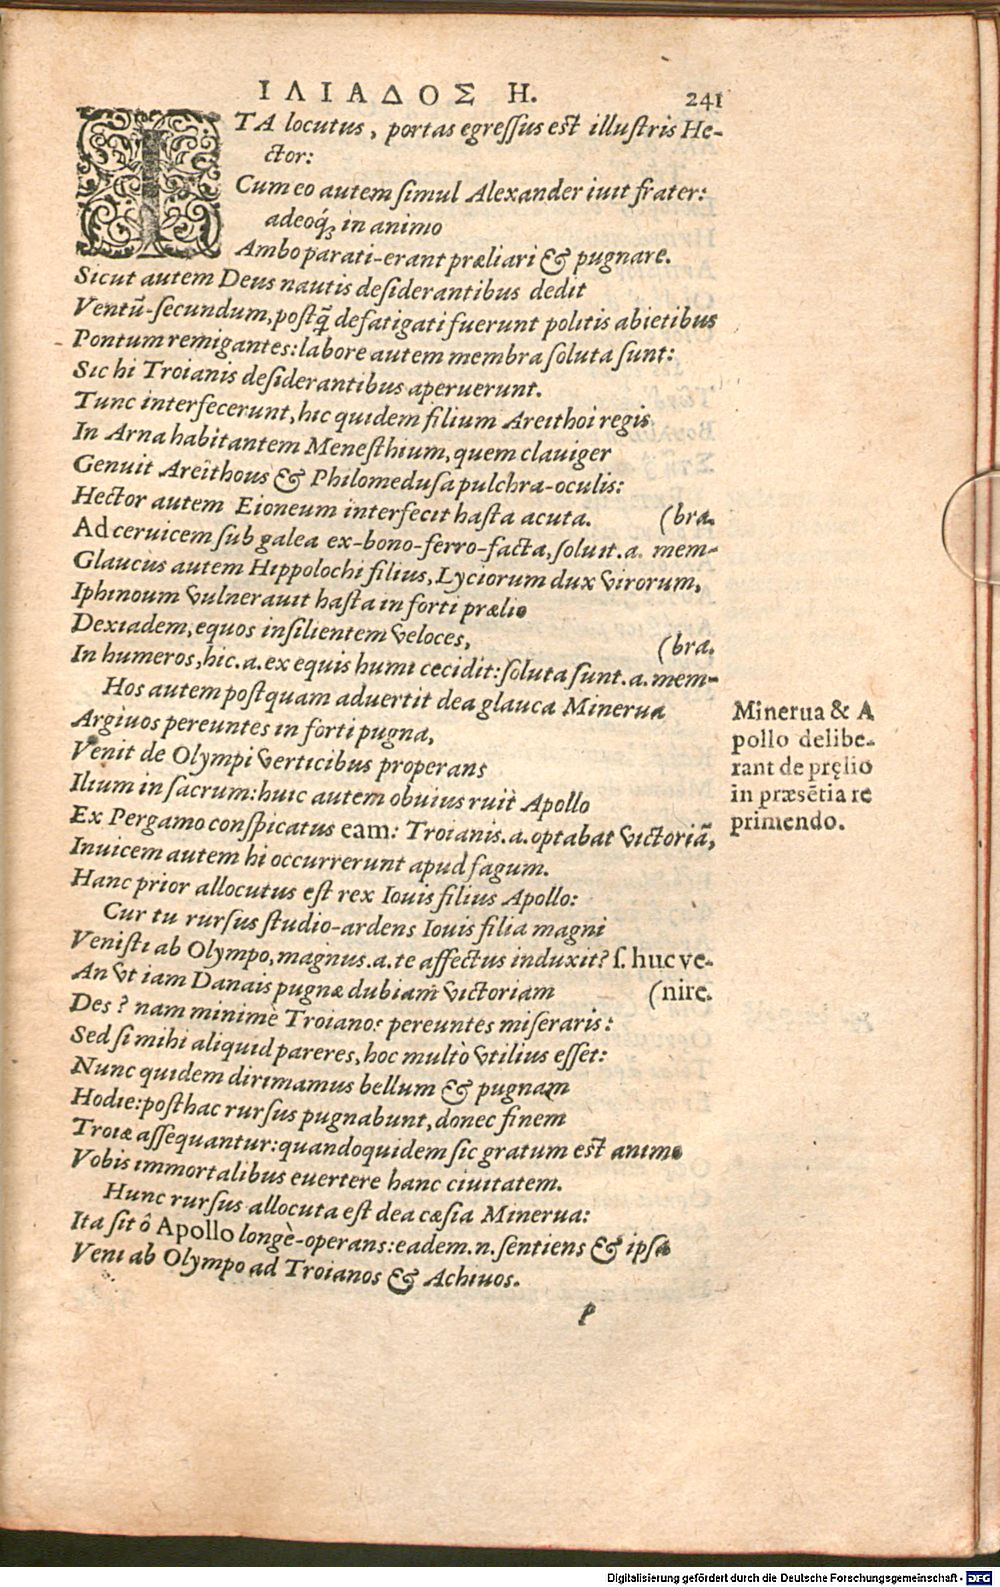 ΙΛΙΑΔΟΣ Η. 241
ITA locutus, portas egressus est illustris He-
ctor:
Cum eo autem simul Alexander iuit frater:
adeoq́; in animo
Ambo parati-erant præliari & pugnare.
Sicut autem Deus nautis desiderantibus dedit
Ventū-secundum, postq̃ defatigati fuerunt politis abietibus
Pontum remigantes: labore autem membra soluta sunt:
Sic hi Troianis desiderantibus aperuerunt.
Tunc interfecerunt, hic quidem filium Areithoi regis
In Arna habitantem Menesthium, quem clauiger
Genuit Areïthous & Philomedusa pulchra-oculis:
Hector autem Eioneum interfecit hasta acuta. (bra.
Ad ceruicem sub galea ex-bono-ferro-facta, soluit.a. mem-
Glaucus autem Hippolochi filius, Lyciorum dux virorum,
Iphinoum vulnerauit hasta in forti prælio
Dexiadem, equos insilientem veloces, (bra.
In humeros, hic.a.ex equis humi cecidit: soluta sunt.a. mem-
Hos autem postquam aduertit dea glauca Minerua
Argiuos pereuntes in forti pugna,
Venit de Olympi verticibus properans
Ilium in sacrum: huic autem obuius ruit Apollo
Ex Pergamo conspicatus eam: Troianis.a.optabat victoriā,
Inuicem autem hi occurrerunt apud fagum.
Hanc prior allocutus est rex Iouis filius Apollo:
Cur tu rursus studio-ardens Iouis filia magni
Venisti ab Olympo, magnus.a.te affectus induxit? s. huc ve-
An vt iam Danais pugnæ dubiam victoriam (nire.
Des? nam minimè Troianos pereuntes miseraris:
Sed si mihi aliquid pareres, hoc multò vtilius esset:
Nunc quidem dirimamus bellum & pugnam
Hodie: posthac rursus pugnabunt, donec finem
Troiæ assequantur: quandoquidem sic gratum est animo
Vobis immortalibus euertere hanc ciuitatem.
Hunc rursus allocuta est dea cæsia Minerua:
Ita sit ô Apollo longè-operans: eadem.n.sentiens & ipsa
Veni ab Olympo ad Troianos & Achiuos.
p
Minerua & A
pollo delibe-
rant de pręlio
in præsētia re
primendo.
Digitalisierung gefördert durch die Deutsche Forschungsgemeinschaft - DFG